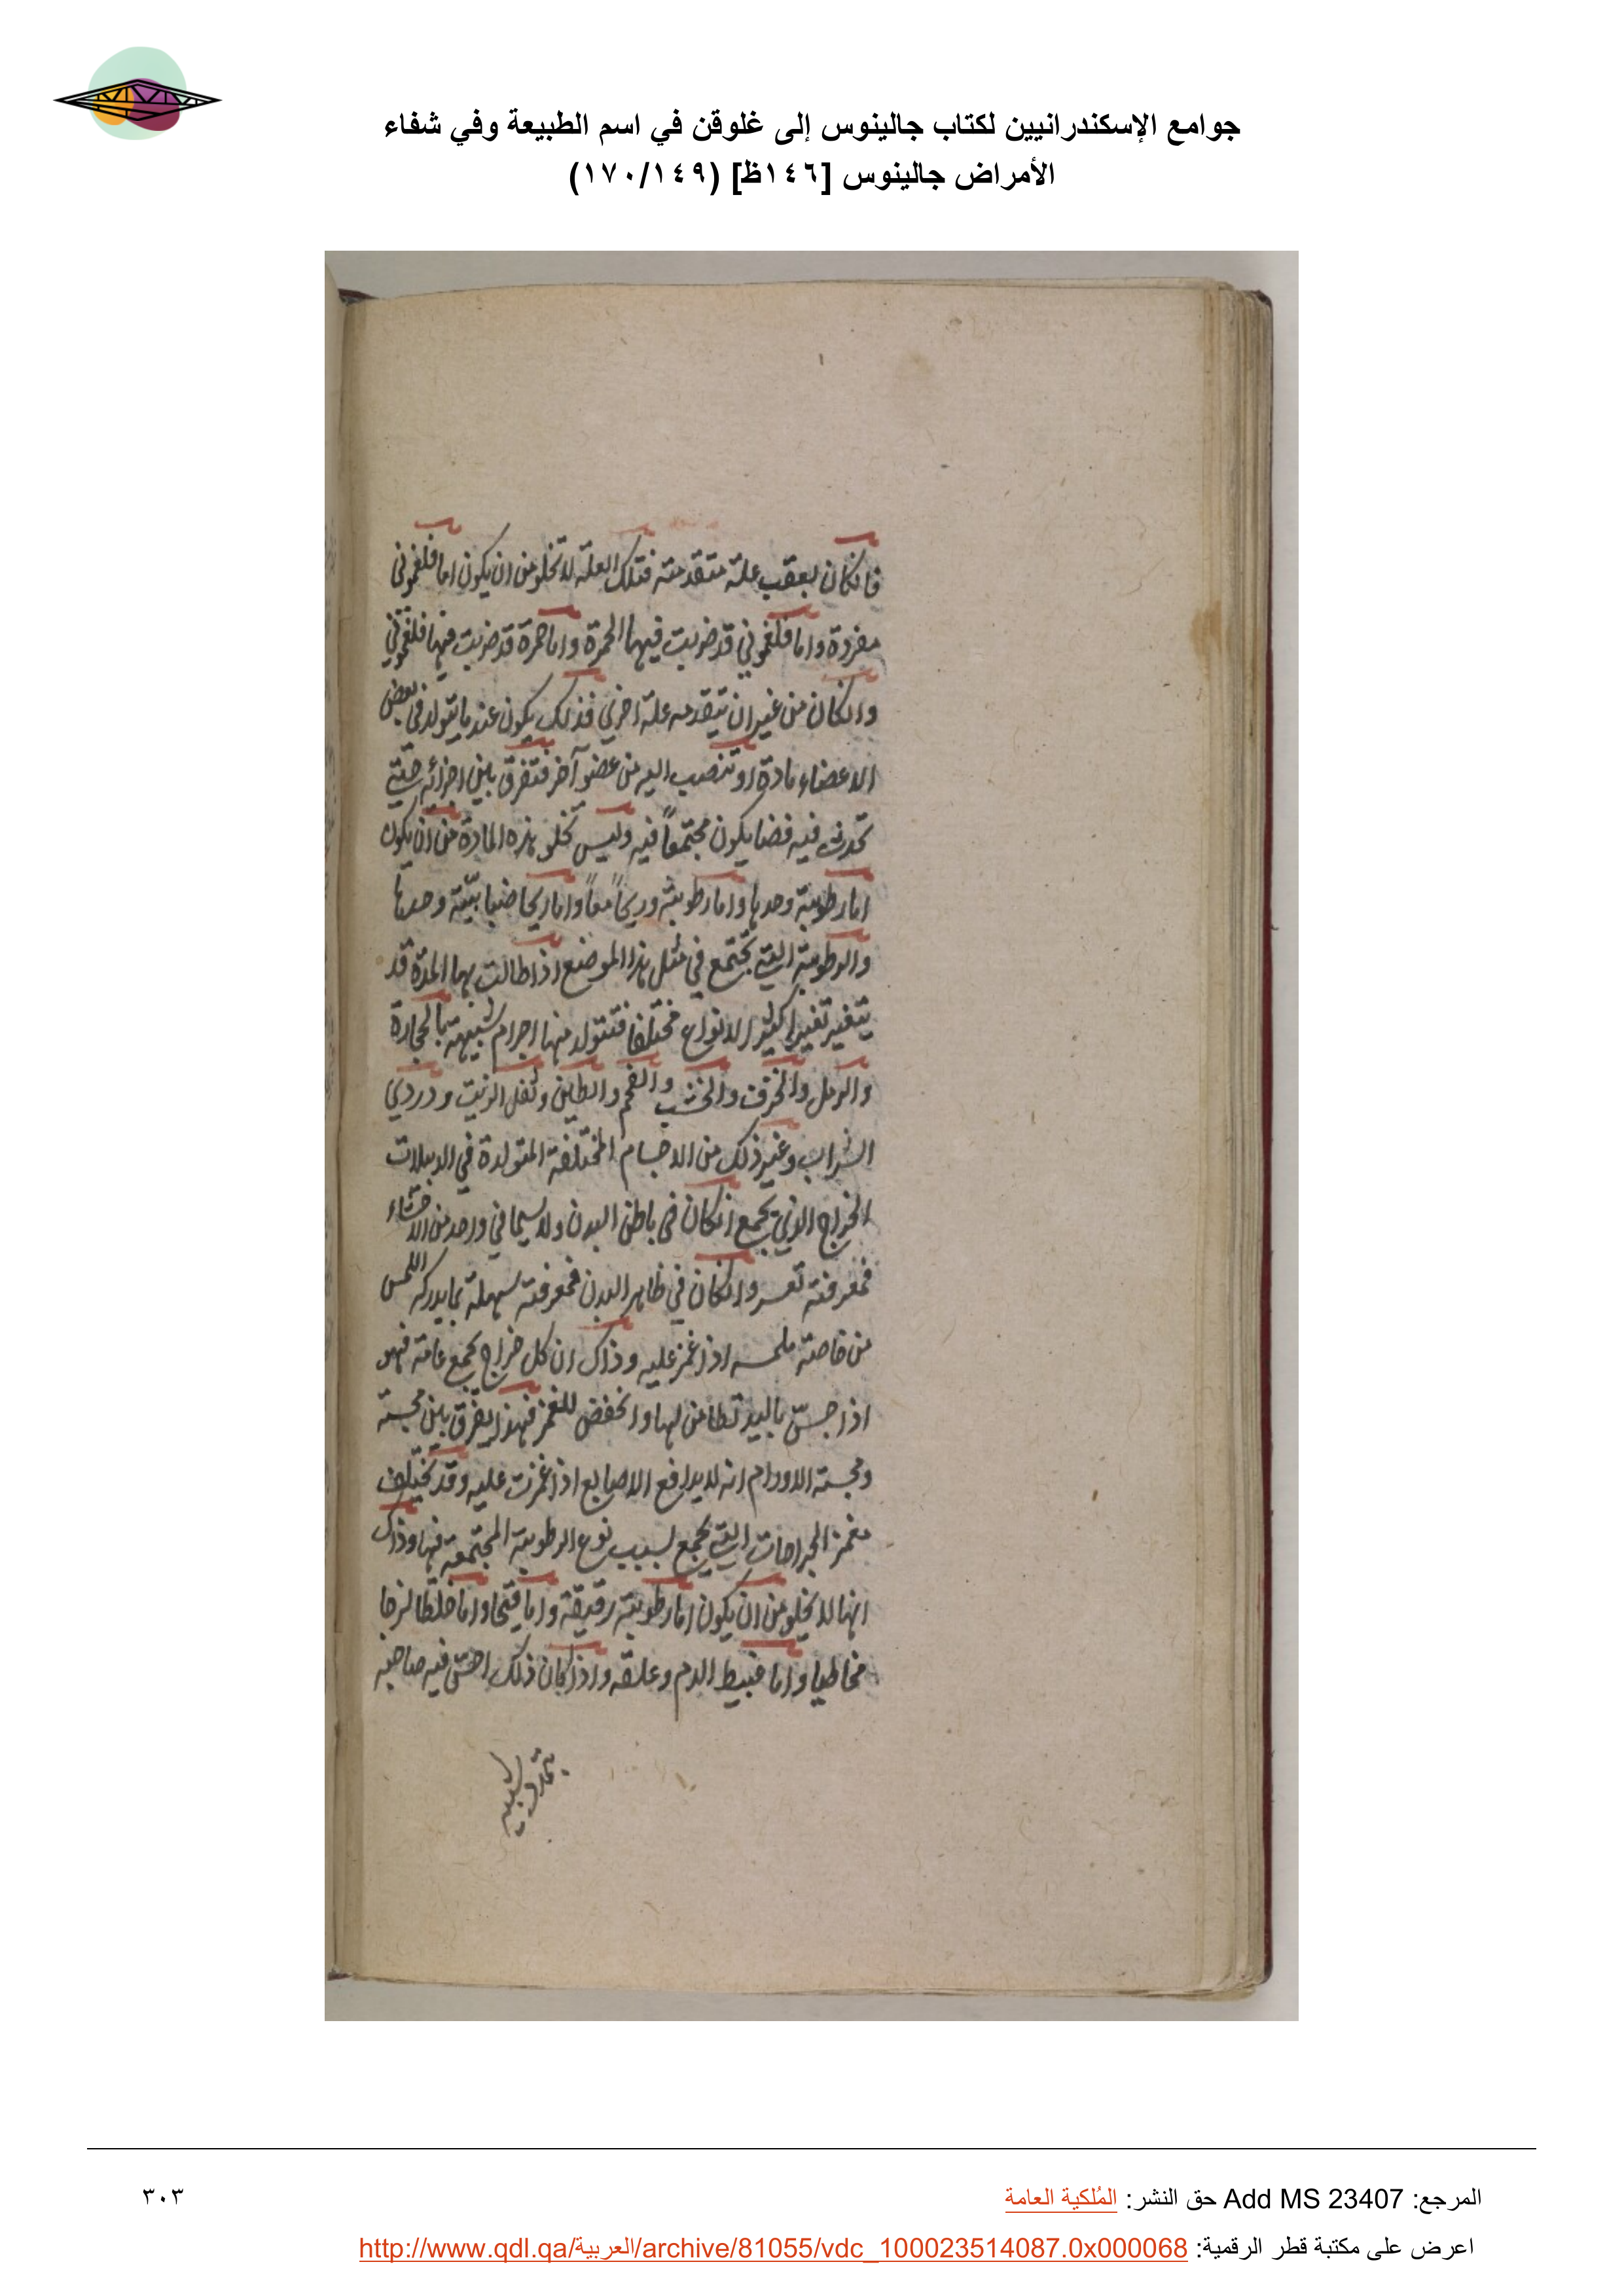 جوامع الإسكندرانيين لكتاب جالينوس إلى غلوقن في اسم الطبيعة وفي شفاء
الأمراض جالينوس [١٤٦ظ] (١٧٠/١٤٩)
فانكان بعقب علة متقدمة فتلك العلة لا تخلو من ان يكون اما فلغموني
مفردة واما فلغموني قد ضربت فيها الحمرة واما حمرة قد ضربت فيها فلغموني
وانكان من غير ان تتقدمه علة اخري فذلك يكون عند ما يتولد في بعض
الاعضاء مادة او تنصب اليه من عضو آخر فتفرق بين اجزائه حتي
تحدث فيه فضا يكون مجتمعاً فيه وليس تخلو هذه المادة من ان يكون
اما رطوبة وحدها واما رطوبة وريحاً معاً واما ريحا ضبابية وحدها
والرطوبة التي تجتمع في مثل هذا الموضع اذا طالت بها المدة قد
يتغير تغيرا كثير الانواع مختلفا فتتولد منها اجرام شبيهة بالحجارة
والرمل والخزف والخشب والفحم والطين وثفل الزيت ودردي
الشراب وغير ذلك من الاجسام المختلفة المتولدة في الدبيلات
الخراج الذي يجمع انكان في باطن البدن ولا سيما في واحد من الاحشاء
فمعرفته تعسر وانكان في ظاهر البدن فمعرفته سهلة بما يدركه اللمس
من خاصة ملمسه اذا غمز عليه وذاك ان كل خراج يجمع عامة فهو
اذا جسّ باليد تطامن لها وانخفض للغمز فهذا يفرق بين مجسة
ومجسة الاورام انه لا يدافع الاصابع اذا غمزت عليه وقد تختلف
مغمز الجراحات التي تجمع بسبب نوع الرطوبة المجتمعة فيها وذاك
انها لا يخلو من ان يكون اما رطوبة رقيقة واما قيحا واما خلطا لزجا
مخاطيا واما عبيط الدم وعلقه واذا كان ذلك احسّ فيه صاحبه
بتمدد شبيه
المرجع: Add MS 23407 حق النشر: المُلكية العامة
٣٠٣
اعرض على مكتبة قطر الرقمية: http://www.qdl.qa/العربية/archive/81055/vdc_100023514087.0x000068